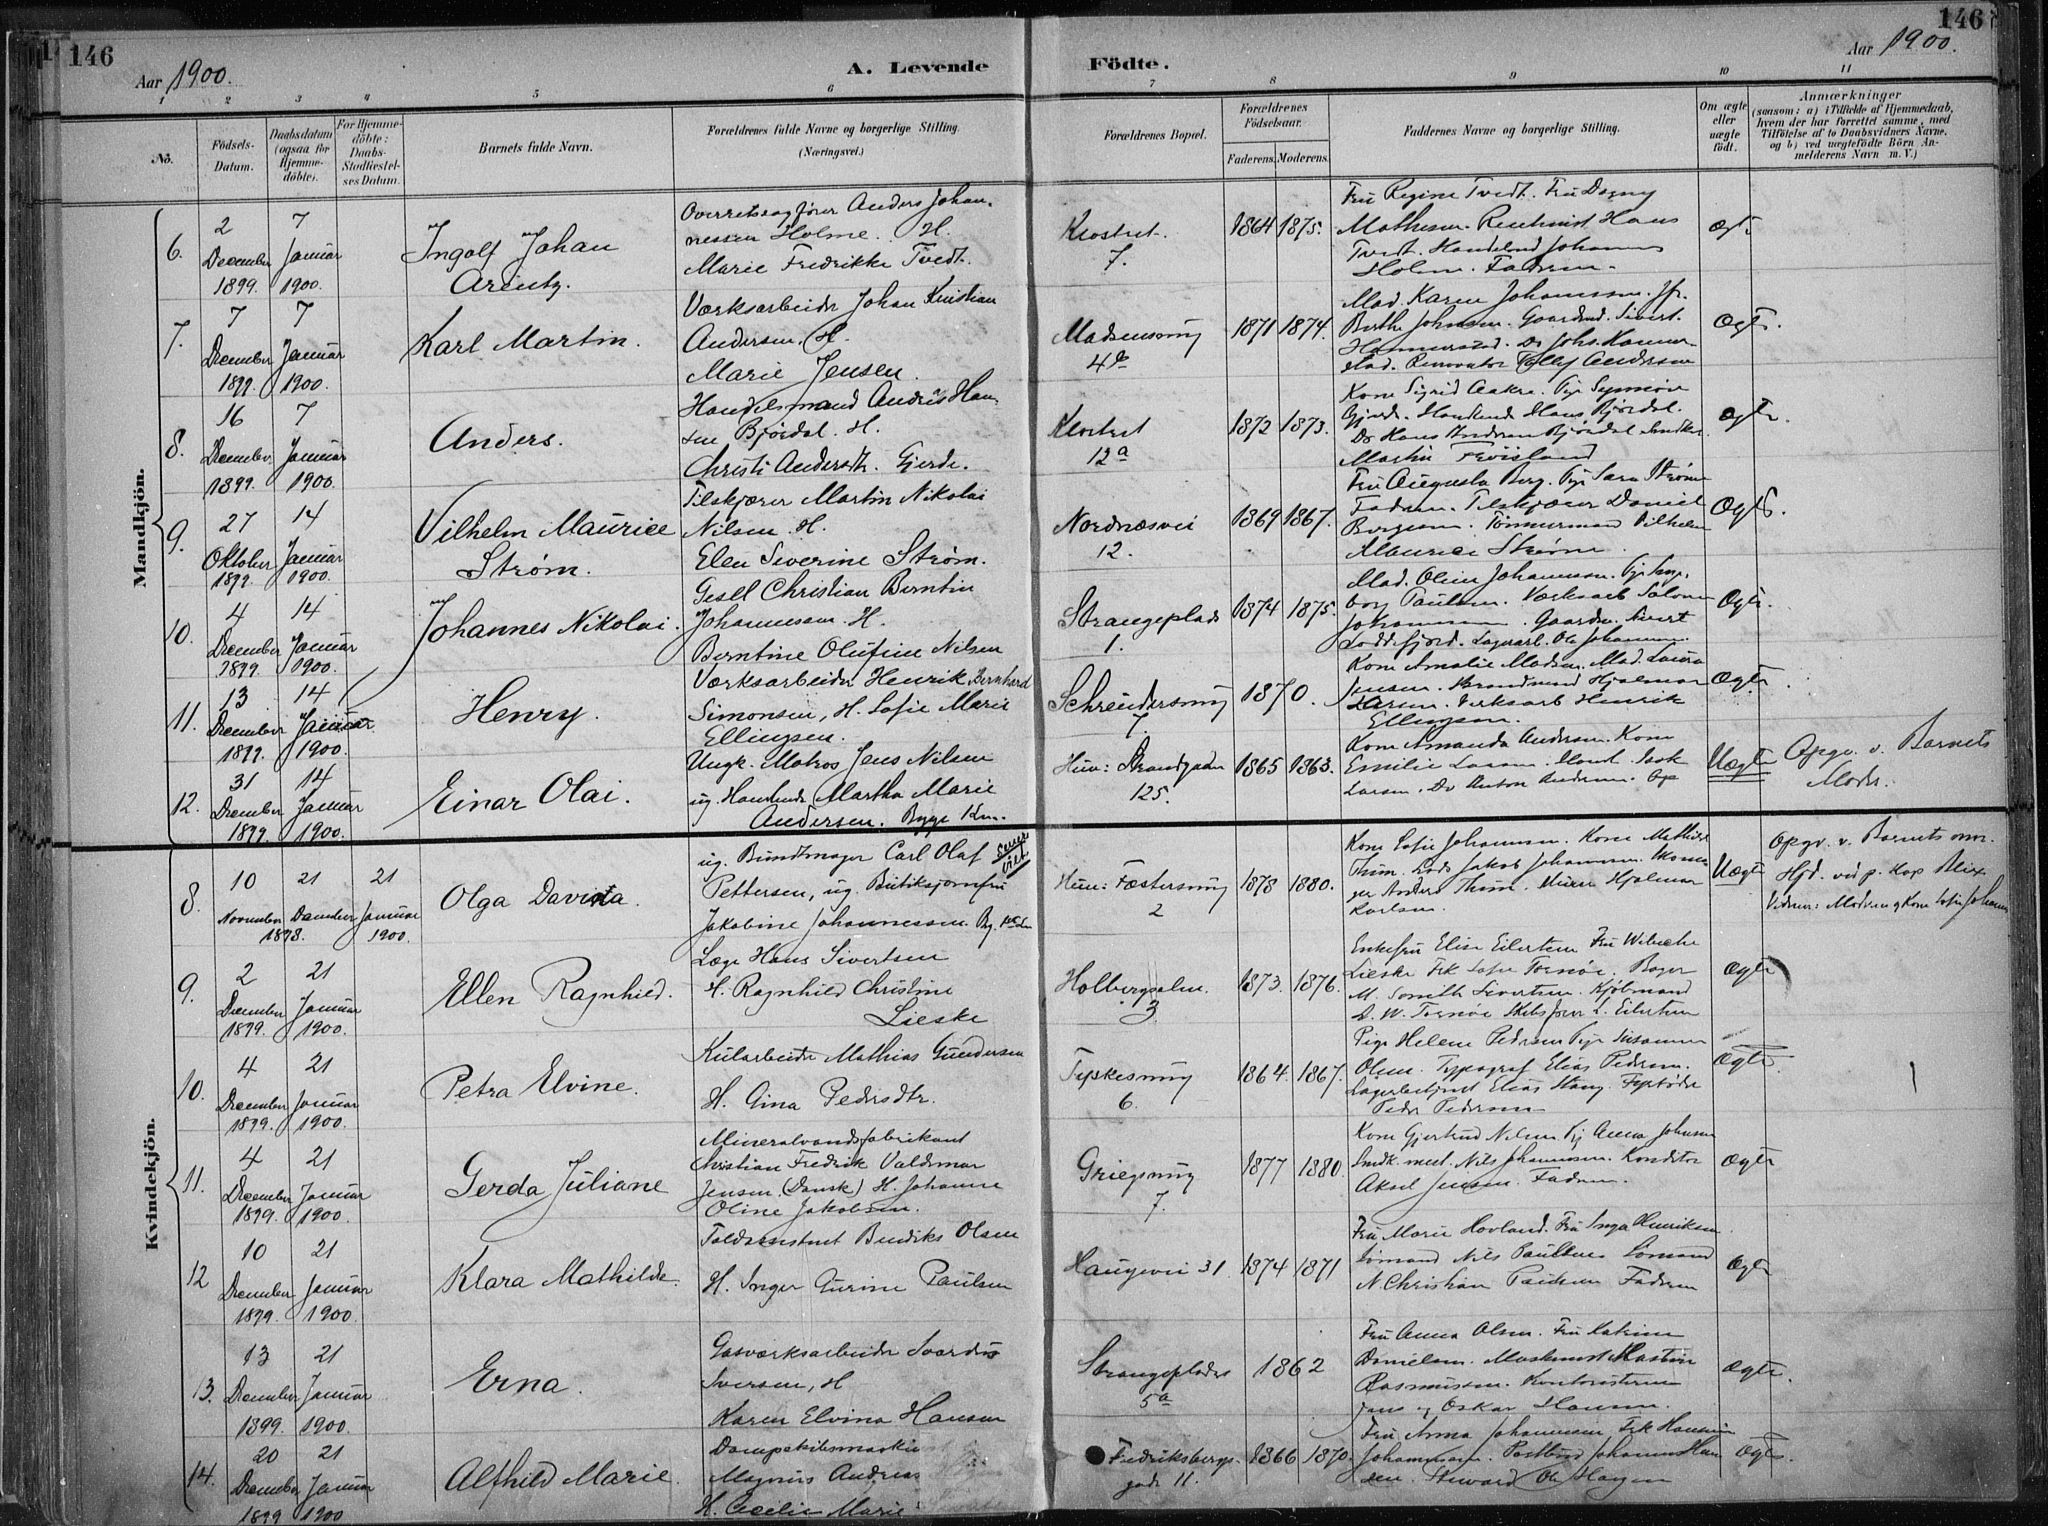 146
146
Aar 1900.
A. Levende
Födte.
Aar 1900.
1 2 3 4 5 6 7 8 9 10 11
No.
Födsels-Datum.
Daabsdatum (ogsaa for Hjemmedöbte).
For Hjemmedöbte: Daabs-Stadfæstelses Datum.
Barnets fulde Navn.
Forældrenes fulde Navne og borgerlige Stilling.
(Næringsvei.)
Forældrenes Bopæl.
Forældrenes Födselsaar.
Faderens. Moderens.
Faddernes Navne og borgerlige Stilling.
Om ægte eller uægte födt.
Anmærkninger
(saasom: a) i Tilfælde af Hjemmedaab, hvem der har forrettet samme, med Tilföielse af to Daabsvidners Navne, og b) ved uægtefödte Börn Anmelderens Navn m. V.)
Mandkjön.
6. 2 December 1899. 7 Januar 1900.
Ingolf Johan Arentz.
Overretssagfører Anders Johan-
nessen Holme. H.
Marie Fredrikke Tvedt.
Klostret. 7.
1864 1875.
Fru Regine Tvedt. Fru Dagny
Mathesen. Hans
Tvedt. Johannes
Holm. Faderen.
Ægt.
7. 7 December 1899. 7 Januar 1900.
Karl Martin.
Værksarbeider Johan Kristian
Andersen. H.
Marie Jensen.
Madsensmug 4b
1871 1874.
Mad. Karen Johannessen. Jfr.
Berthe Johnsen. Gaardmd. Sivert
Hammerstad. Do Johs. Hammer-
stad. Renovatør Andersen
Ægte.
8. 16 December 1899. 7 Januar 1900.
Anders.
Handelsmand Andreas Han-
sen Bjørdal. H.
Christi Andersdtr. Gjerde.
Klostret 12a
1872 1873.
Kone Sigrid Aakre. Pige Synnøve
Gjerde. Hans Bjørdal.
Do Hans Andersen Bjørdal
Martin
Ægte.
9. 27 Oktober 1899. 14 Januar 1900.
Vilhelm Maurice Strøm.
Tilskjærer Martin Nikolai
Nilsen. H.
Elen Severine Strøm.
Nordnæsvei 12.
1869 1867.
Fru Augusta Berg. Pige Sara Strøm
Faderen. Tilskjærer Daniel
Bergesen. Tømmermand Vilhelm
Maurice Strøm.
Ægte.
10. 4 December 1899. 14 Januar 1900.
Johannes Nikolai.
Gesell Christian Berntin
Johannessen. H.
Berntine Olufine Nilsen
Strangeplads 1.
1874 1875.
Mad. Oline Johannessen. Pige Inge-
borg Paulsen. Værksarb Salomon
Johannessen. Gaardm. Sivert
Loddefjord. Lagerarb. Ole Johannessen.
Ægte.
11. 13 December 1899. 14 Januar 1900.
Henry.
Værksarbeider Henrik Bernhard
Simonsen, H. Sofie Marie
Ellingsen.
Schreudersmug 7.
1870.
Kone Amalie Madsen. Mad. Laura
Jensen. Brandmand Hjalmar
Larsen. Verksarb Henrik
Ellingsen.
Ægte.
12. 31 December 1899. 14 Januar 1900.
Einar Olai.
Ungk. Matros Jens Nilsen
ug. Martha Marie
Andersen. Begge 1 Km.
Hun: Strandgaden 125.
1865 1863.
Kone Amanda Andersen. Kone
Emilie Larsen. Isak
Larsen. Do Anton Andersen.
Uægte
Opgv. v. Barnets Moder.
Kvindekjön.
8. 10 November 21 December 1898. 21 Januar 1900.
Olga Davida.
ug. Bundtmager Carl Olaf
Pettersen, ug. Butiksjomfru
Jakobine Johannessen.
Senere viet
Hun: Fæstersmug 2
1878 1880.
Kone Sofie Johannessen. Kone Mathilde
Thim. Jakob Johannessen. Skoma-
ger Anders Thim. Murer Hjalmar
Karlsen.
Uægte
Opgv. v. Barnets mor.
Hjd. ved p. Kap Blix
Vidner: Modren og Kone Sofie Johannes
9. 2 December 1899. 21 Januar 1900.
Ellen Ragnhild.
Læge Hans Sivertsen
H. Ragnhild Christine
Lieske
Holbergsalm. 3
1873. 1876.
Enkefru Elise Eilertsen Fru Wibecke
Lieske Frk Sofie Tornøe. Bager
M. Smith Sivertsen. Kjøbmand
D. W. Tornøe Skibsfører L. Eilertsen
Ægte
10. 4 December 1899. 21 Januar 1900.
Petra Elvine.
Kularbeider Mathias Gundersen
H. Gina Pedersdtr.
Tyskesmug 6.
1864. 1867.
Pige Helene Pedersen Pige Susanne
Olsen. Typograf Elias Pedersen.
Lagerbetjent Elias Stang. Fyrbøder
Peder Pedersen
Ægte.
11. 4 December 1899. 21 Januar 1900.
Gerda Juliane
Mineralvandsfabrikant
Christian Fredrik Valdemar
Jensen (Dansk) H. Johanne
Oline Jakobsen.
Griegsmug 7.
1877 1880
Kone Gjertrud Nilsen Pg Anna Johnsen
Smdk. mest. Nils Johannesen. Konditor
Aksel Jensen. Faderen.
Ægte
12 10 December 1899. 21 Januar 1900.
Klara Mathilde.
Toldassistent Bendiks Olsen
H. Inger Gurine Paulsen
Haugevei 31
1874 1871
Fru Marie Hovland. Fru Inga Henriksen
Sømand Nils Paulsen Sømand
N Christian Paulsen Faderen
Ægte
13. 13 December 1899. 21 Januar 1900.
Erna.
Gasværksarbeider Sverdrus
Iversen, H
Karen Elvina Hansen
Strangepladsen 5a
1862
Fru Anna Olsen. Fru Katrine
Danielsen. Maskinist Martin
Rasmussen. Kontoristerne
Jens og Oskar Hansen.
Ægte.
14. 20 December 1899 21 Januar 1900
Alfhild Marie.
Dampskibsmaskinist
Magnus Andreas
H. Cecilie Marie
Fredriksbergs-
gade 11.
1866 1870.
Fru Anna Johannesen Frk
Johannesen. Postbud Johannes Han
sen. Steward Ole Hagen
Ægte.